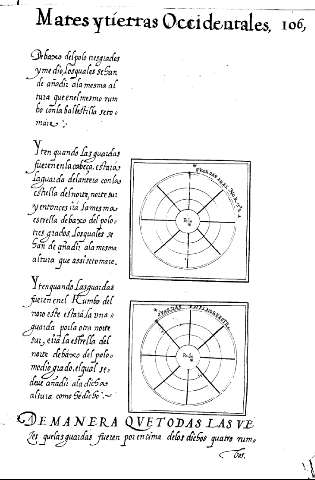 Mares y tierras Occidentales, 106,
Debaxo del polo tres grados
y medio, los quales se han
de añadir a la mesma al
tura que en el mesmo rum
bo con la ballestilla se to-
mare.
Y ten quando las guardas
fueren en la cabeça, estara
la guarda delantera con la
estrella del norte, norte sur
y entonces ira la mesma
estrella debaxo del polo
tres grados los quales se
han de añadir a la misma
altura que assi se tomare.
Y ten quando las guardas
fueren en el Rumbo del
norueste estara la una
guarda por la otra norte
sur, e ira la estrella del
norte debaxo del polo
medio grado, el qual se
deue añadir a la dicha
altura como he dicho.
Polo
Polo
DE MANERA QUE TODAS LAS VE
zes que las guardas fueren por encima de los dichos quatro rum
bos,